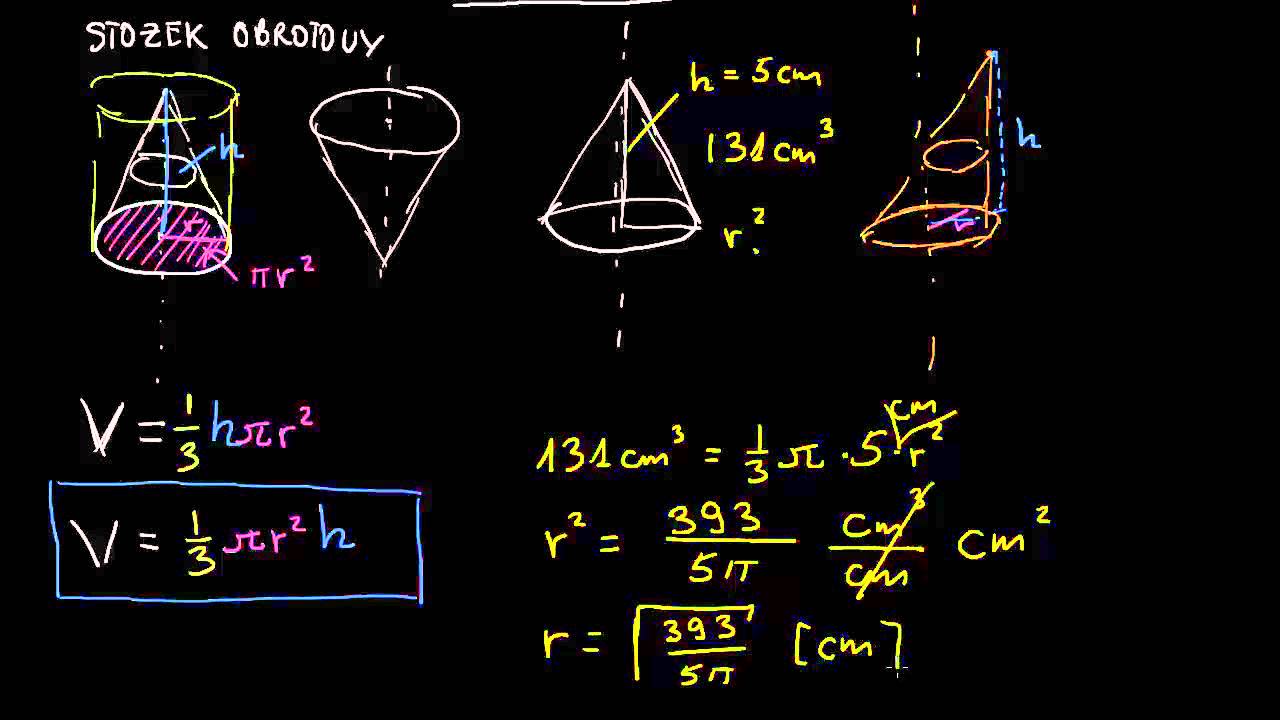 STOZEK OBROTOWY
h
πr²
r
h = 5cm
131cm³
r²
h
r
V = 1/3 hπr²
V = 1/3 πr² h
131cm³ = 1/3 π · 5 cm · r²
r² = 393/5π cm³/cm cm²
r = √393/5π [cm]